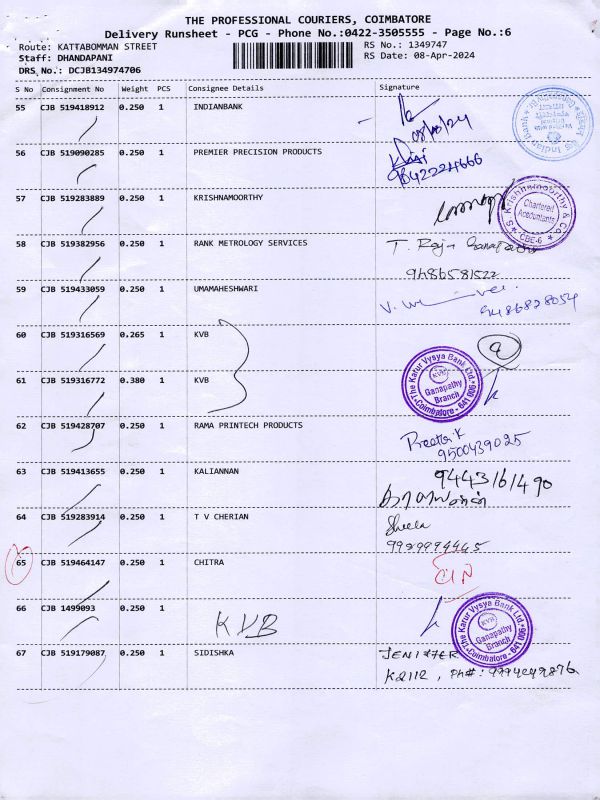 THE PROFESSIONAL COURIERS, COIMBATORE
Delivery Runsheet - PCG - Phone No.:0422-3505555 - Page No.:6
Route: KATTABOMMAN STREET RS No.: 1349747
Staff: DHANDAPANI RS Date: 08-Apr-2024
DRS No.: DCJB134974706
S No Consignment No Weight PCS Consignee Details Signature
55 CJB 519418912 0.250 1 INDIANBANK
56 CJB 519090285 0.250 1 PREMIER PRECISION PRODUCTS
9842224666
57 CJB 519283889 0.250 1 KRISHNAMOORTHY
S. Krishnamoorthy & Co
Chartered
Accountants
CBE-6
58 CJB 519382956 0.250 1 RANK METROLOGY SERVICES T. Raja
9486581522
59 CJB 519433059 0.250 1 UMAMAHESHWARI
9486828054
60 CJB 519316569 0.265 1 KVB
61 CJB 519316772 0.380 1 KVB
The Karur Vysya Bank Ltd.
KVB
Ganapathy
Branch
Coimbatore - 641 006
62 CJB 519428707 0.250 1 RAMA PRINTECH PRODUCTS Preethi K
9500439025
63 CJB 519413655 0.250 1 KALIANNAN 9443161490
64 CJB 519283914 0.250 1 T V CHERIAN Sheela
9929994445
65 CJB 519464147 0.250 1 CHITRA
66 CJB 1499093 0.250 1 KVB
The Karur Vysya Bank Ltd.
KVB
Ganapathy
Branch
Coimbatore - 641 006
67 CJB 519179087 0.250 1 SIDISHKA JENIFFER